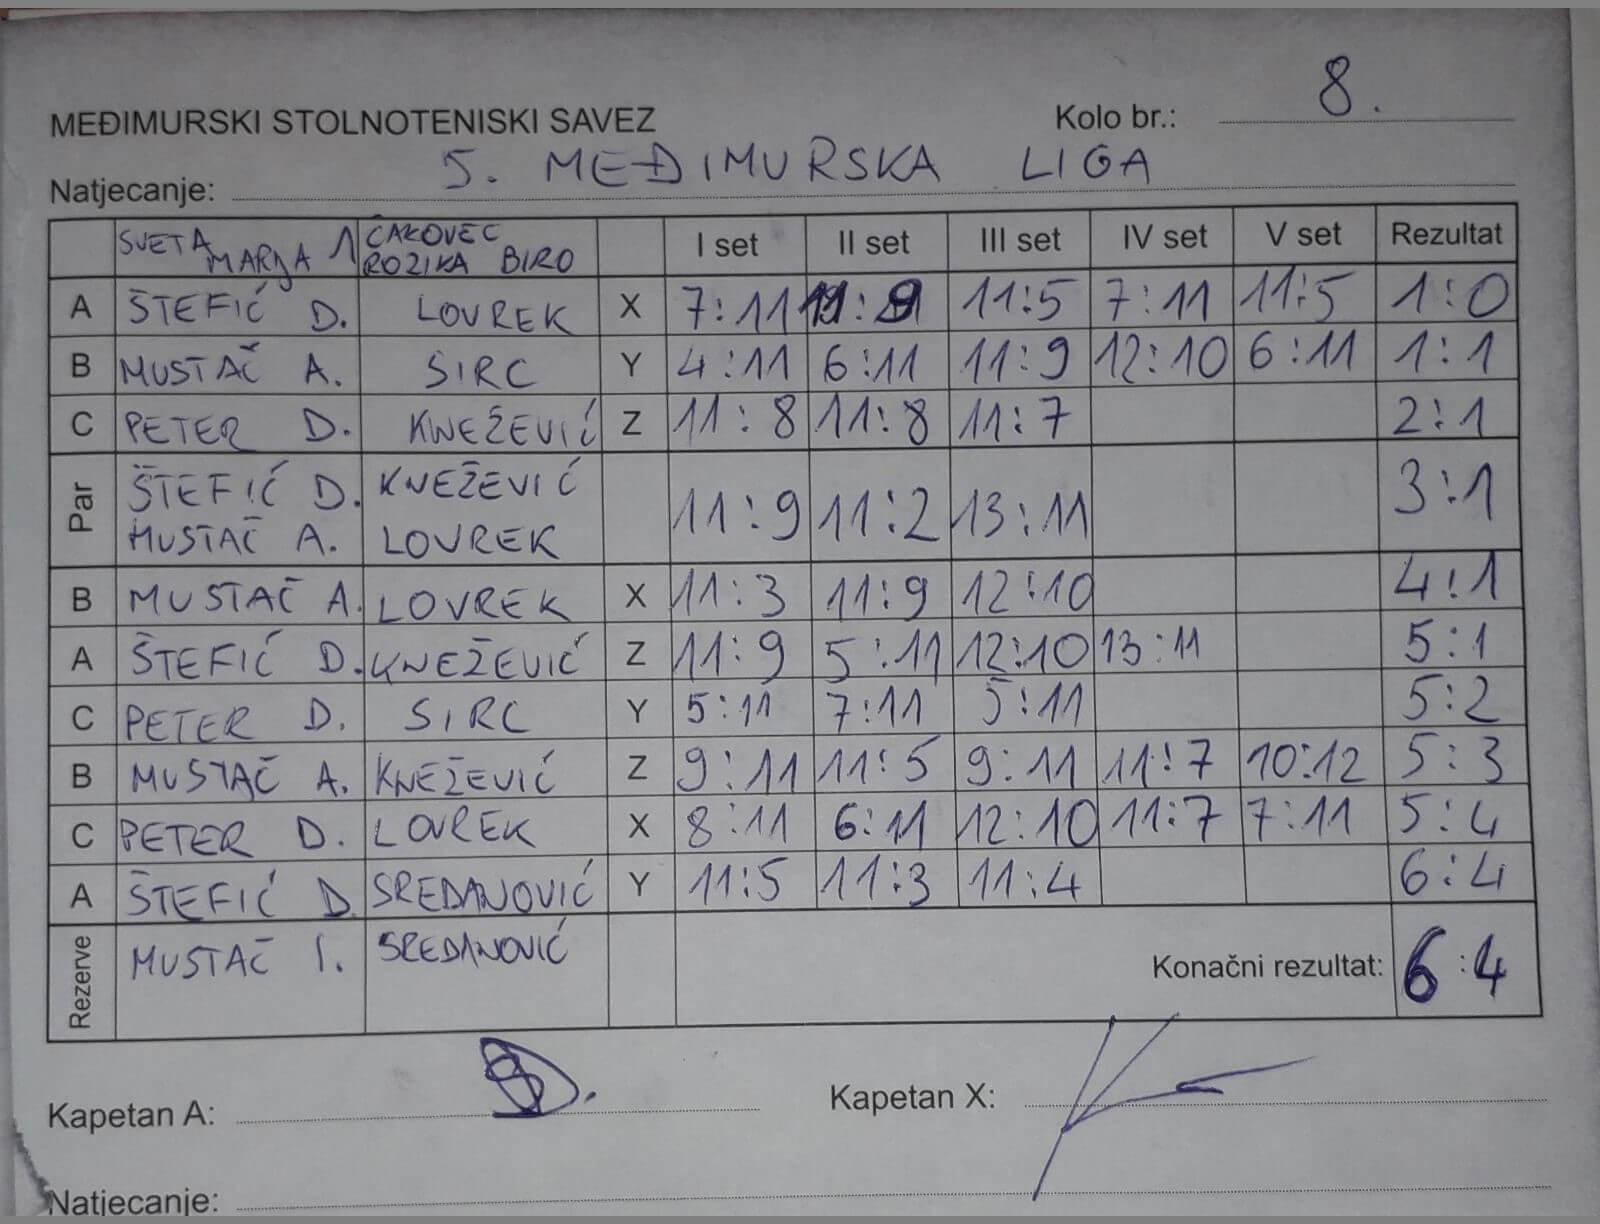 MEĐIMURSKI STOLNOTENISKI SAVEZ Kolo br.: 8.
Natjecanje: 5. MEĐIMURSKA LIGA
SVETA MARIJA 1 ČAKOVEC ROZIKA BIRO I set II set III set IV set V set Rezultat
A ŠTEFIĆ D. LOVREK X 7:11 11:9 11:5 7:11 11:5 1:0
B MUSTAČ A. SIRC Y 4:11 6:11 11:9 12:10 6:11 1:1
C PETER D. KNEŽEVIĆ Z 11:8 11:8 11:7 2:1
Par ŠTEFIĆ D. KNEŽEVIĆ 11:9 11:2 13:11 3:1
MUSTAČ A. LOVREK
B MUSTAČ A. LOVREK X 11:3 11:9 12:10 4:1
A ŠTEFIĆ D. KNEŽEVIĆ Z 11:9 5:11 12:10 13:11 5:1
C PETER D. SIRC Y 5:11 7:11 5:11 5:2
B MUSTAČ A. KNEŽEVIĆ Z 9:11 11:5 9:11 11:7 10:12 5:3
C PETER D. LOVREK X 8:11 6:11 12:10 11:7 7:11 5:4
A ŠTEFIĆ D. SREDANOVIĆ Y 11:5 11:3 11:4 6:4
Rezerve MUSTAČ I. SREDANOVIĆ Konačni rezultat: 6:4
Kapetan A: Kapetan X:
Natjecanje: